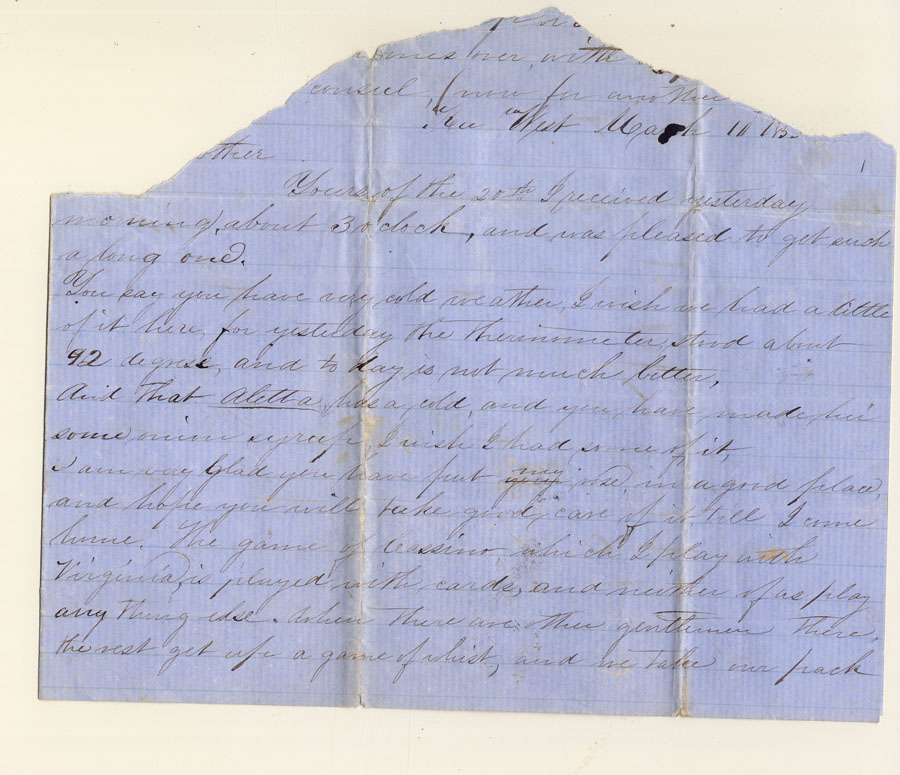 over with
consul (now for another
West March 11 185
other
Yours of the 20th I received yesterday
morning, about 3 o clock, and was pleased to get such
a long one.
You say you have very cold weather, I wish we had a little
of it here, for yesterday the thermometer, stood about
92 degrees, and to day is not much better,
And that Aletta, has a cold, and you have made her
some syrup, I wish I had some of it,
I am very Glad you have put my in a good place,
and hope you will take good, care of it till I come
home. The game of Cassino, which I play with
Virginia, is played with cards, and neither of us play
any thing else. When there are other gentlemen there,
the rest get up a game of whist, and we take our pack